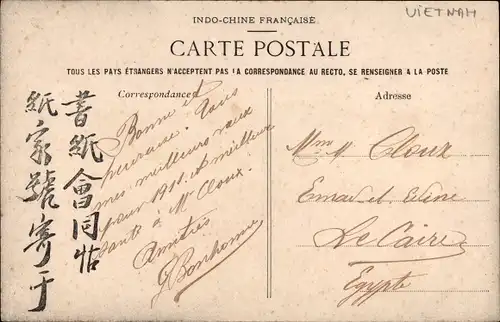 INDO-CHINE FRANÇAISE
VIETNAM
CARTE POSTALE
TOUS LES PAYS ÉTRANGERS N'ACCEPTENT PAS LA CORRESPONDANCE AU RECTO, SE RENSEIGNER A LA POSTE
Correspondance
Adresse
書紙會同帖
紙家號寄于
Bonne et
heureuse. Tous
mes meilleurs vœux
pour 1911 et meilleur
santé à Mr Cloux.
Amitiés
Bonhomme
Mme M. Cloux
Le Caire
Egypte